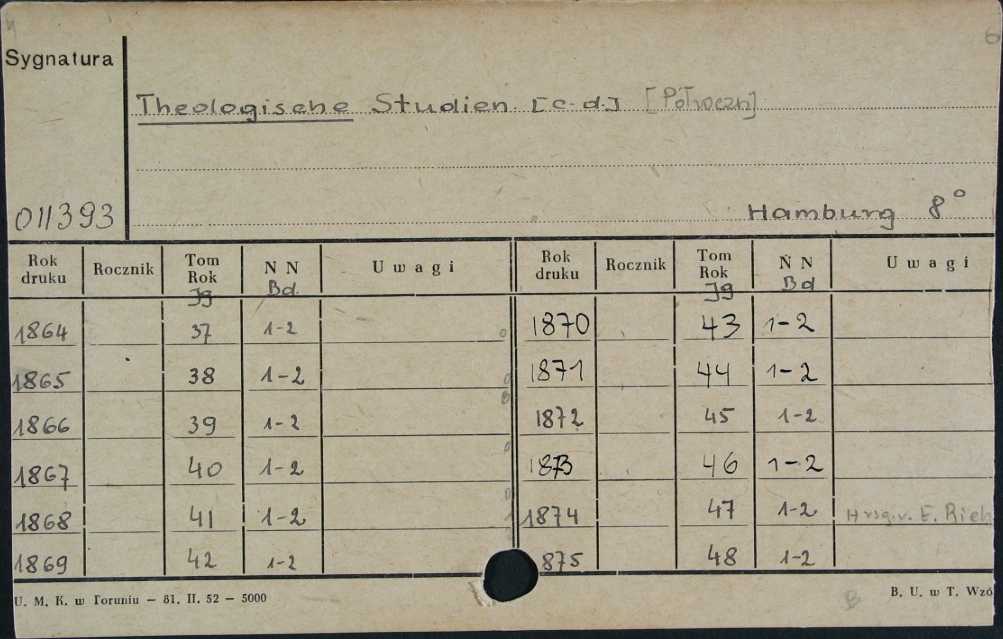 6
Sygnatura
Theologische Studien [c.d.] [Półroczn]
011393
Hamburg 8°
Rok druku Rocznik Tom Rok Jg N N Bd. Uwagi Rok druku Rocznik Tom Rok Jg N N Bd Uwagi
1864 37 1-2 1870 43 1-2
1865 38 1-2 1871 44 1-2
1866 39 1-2 1872 45 1-2
1867 40 1-2 1873 46 1-2
1868 41 1-2 1874 47 1-2 Hrsg. v. E. Rieh
1869 42 1-2 875 48 1-2
U. M. K. w Toruniu — 81. II. 52 — 5000
B
B. U. w T. Wzó